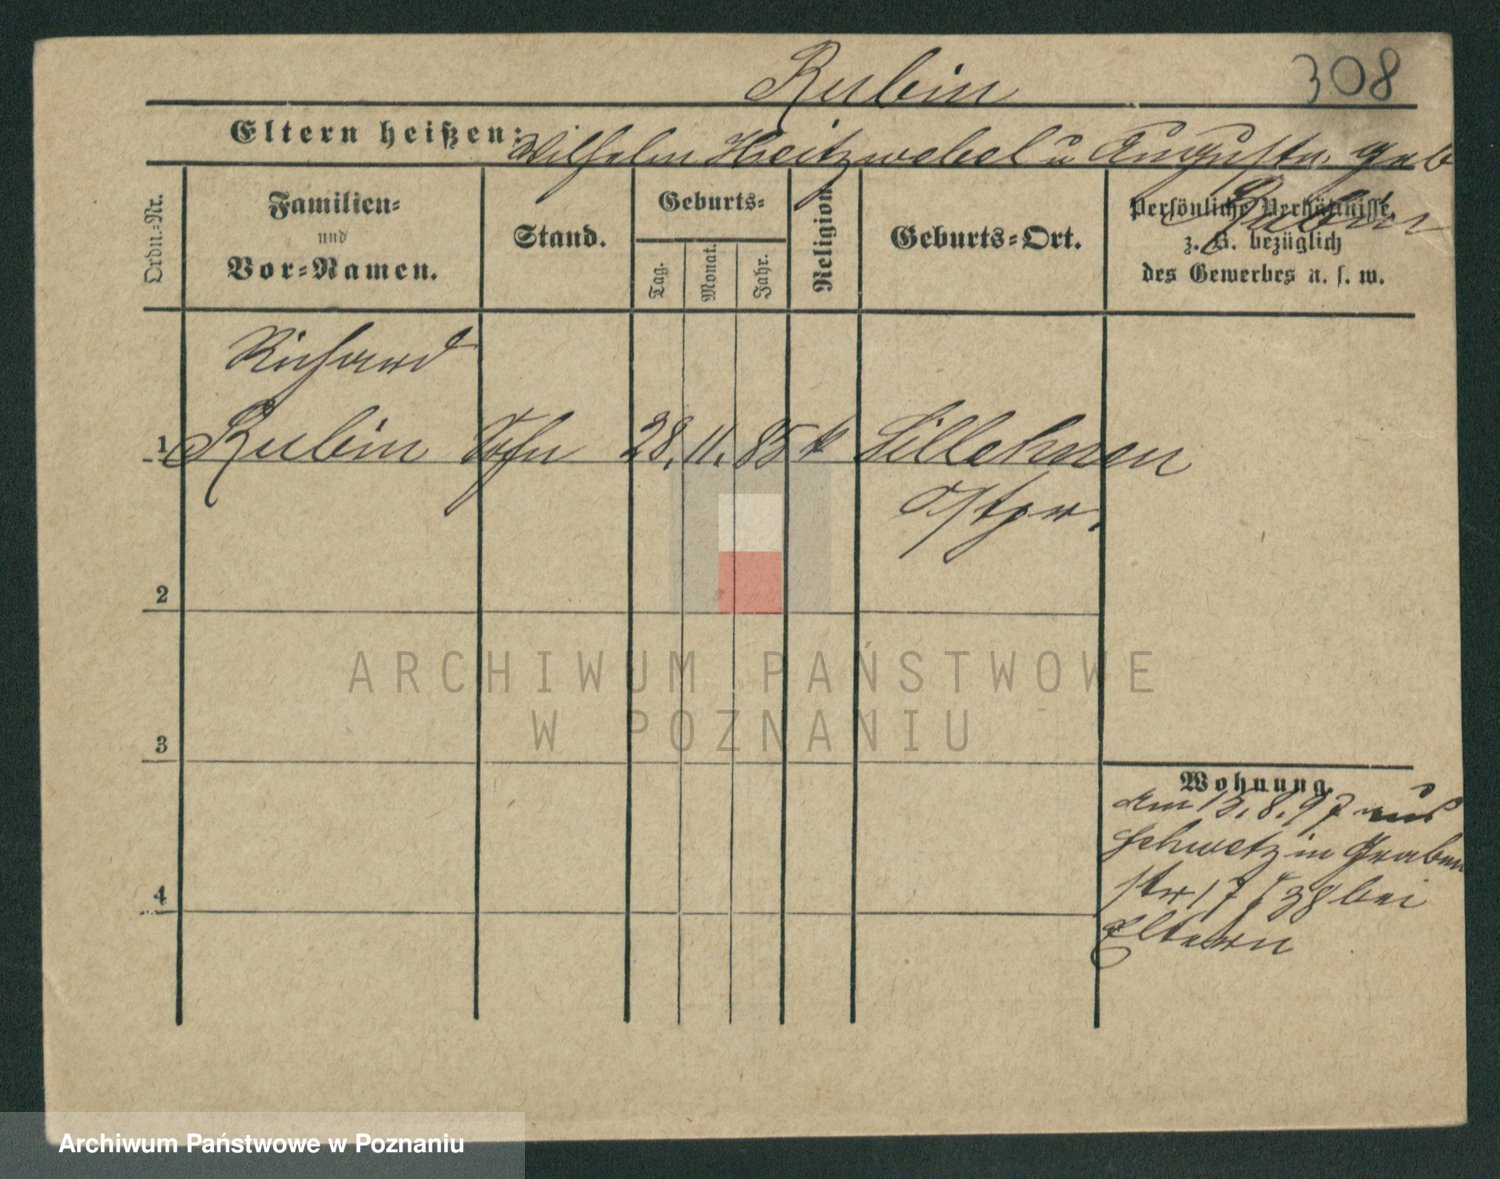 Rubin
308
Eltern heißen: Wilhelm Heitzwebel u Augusta geb
Rubin
Ordn.-Nr.
Familien-
und
Vor-Namen.
Stand.
Geburts-
Tag.
Monat.
Jahr.
Religion
Geburts-Ort.
Persönliche Verhältnisse,
z. B. bezüglich
des Gewerbes u. s. w.
Richard
1 Rubin Sohn 28. 11. 85 k Lillehnen
Ostpr.
2
3
4
Wohnung.
am 13.8.97 aus
Schwetz in Graben
str 17 / 38 bei
Eltern
ARCHIWUM PAŃSTWOWE
W POZNANIU
Archiwum Państwowe w Poznaniu